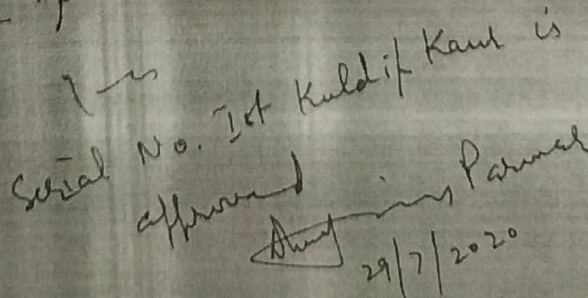 Serial No. Ist Kuldip Kaur is
approved
Parmar
29/7/2020